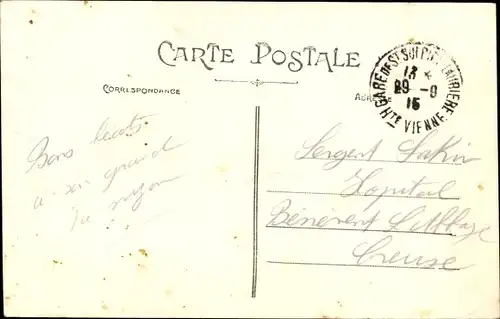 CARTE POSTALE
CORRESPONDANCE
GARE DE ST SULPICE LAURIERE
13 *
29 - 9
15
HTE VIENNE
Bons
a son grand
Sergent
Hopital
Bénévent L'Abbaye
Creuse